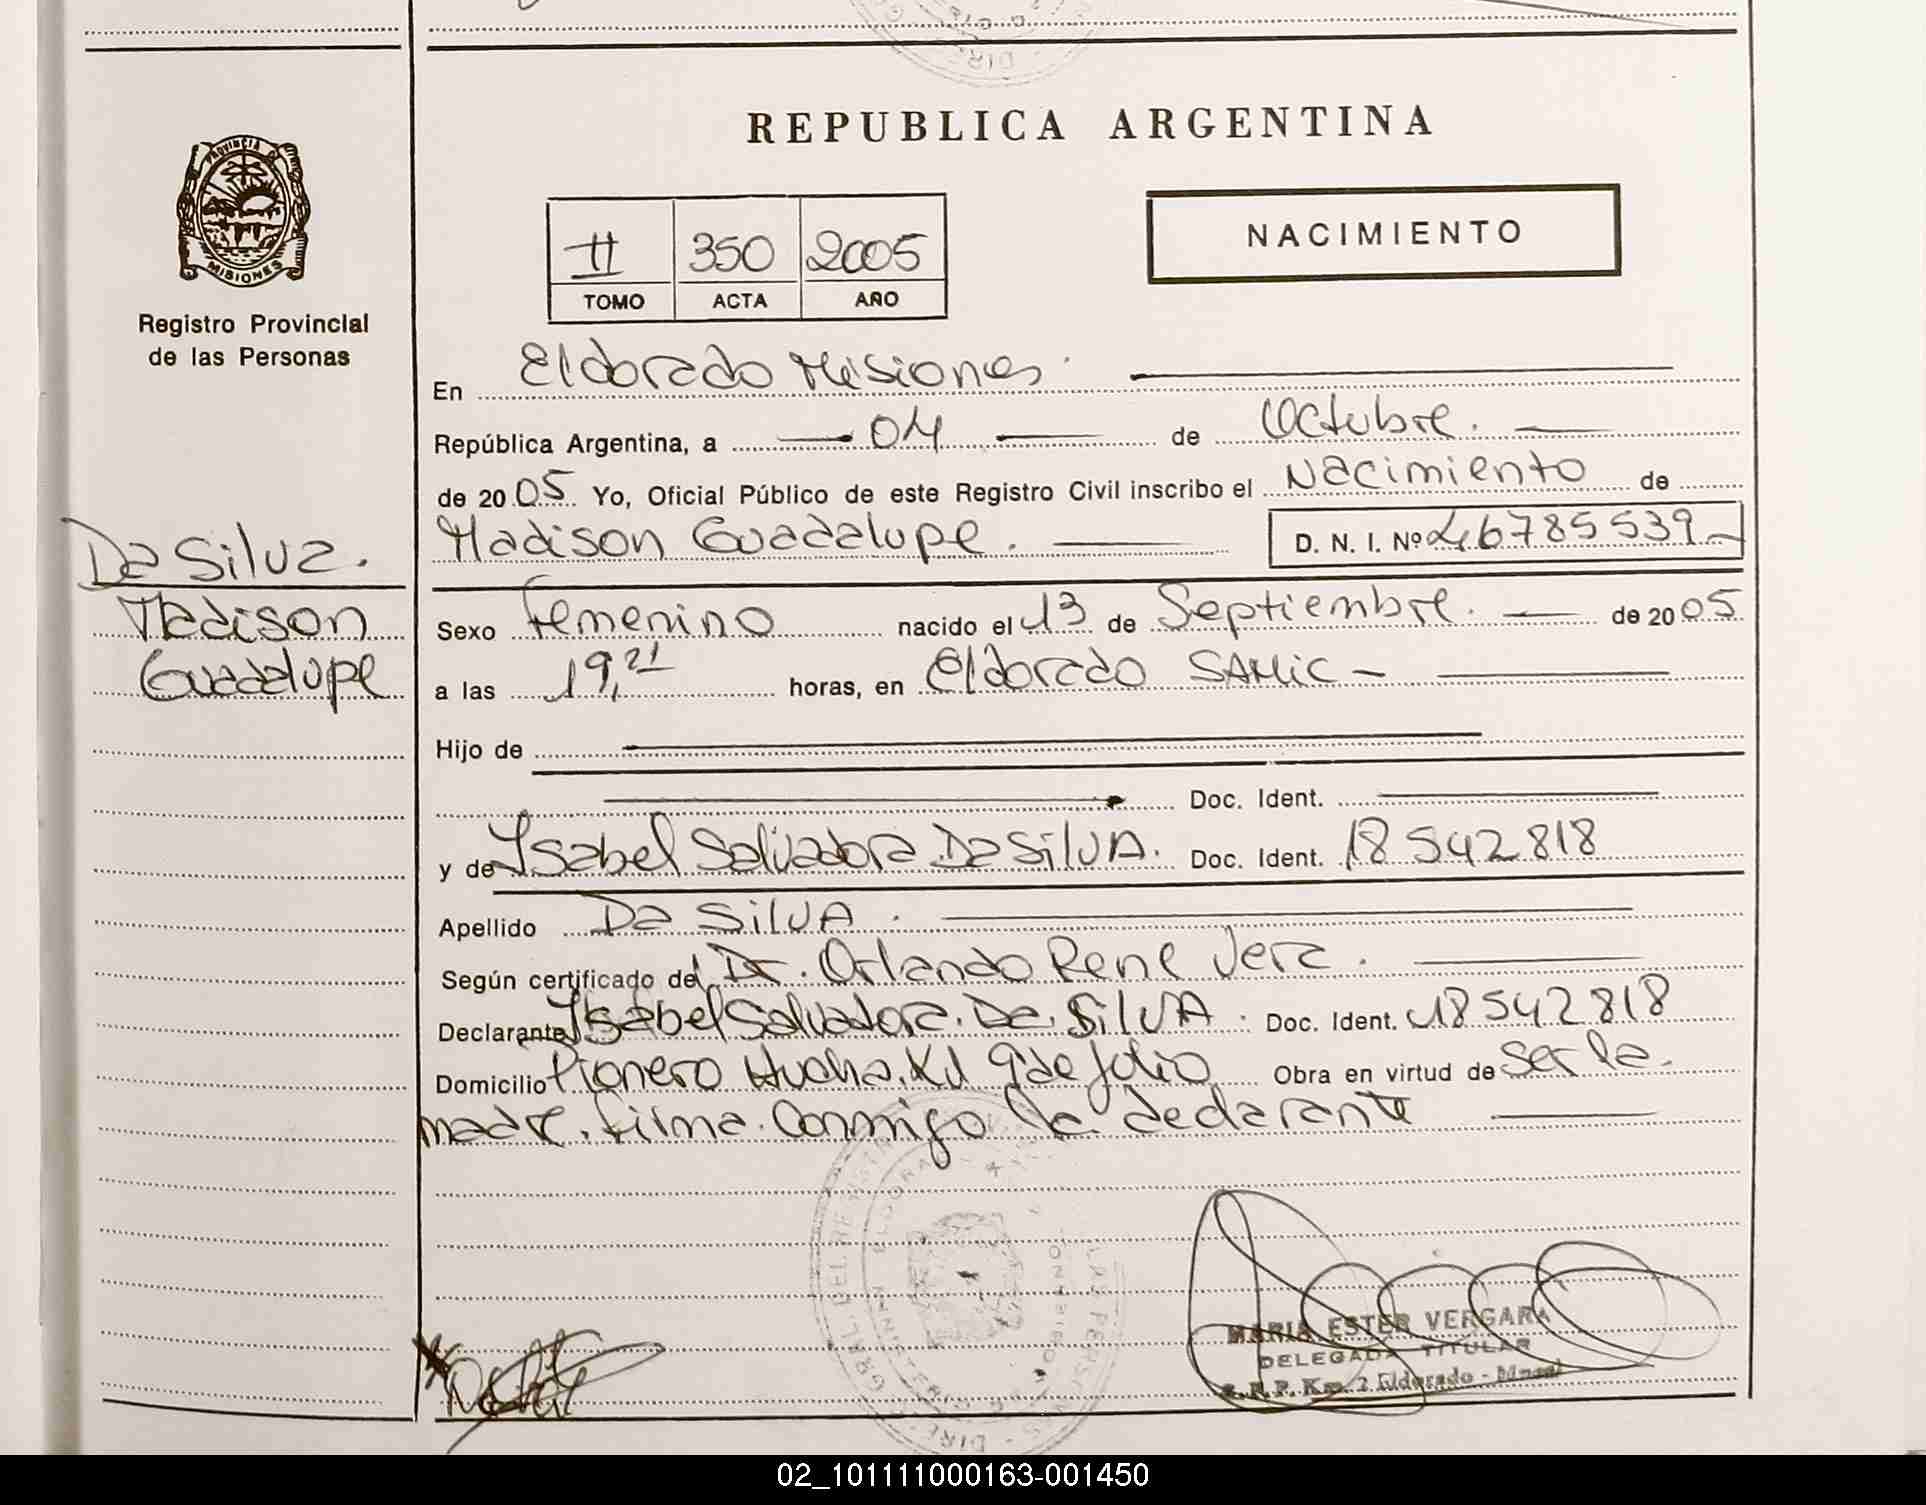 REPUBLICA ARGENTINA
PROVINCIA DE
MISIONES
Registro Provincial
de las Personas
II 350 2005
TOMO ACTA AÑO
NACIMIENTO
En Eldorado Misiones.
República Argentina, a 04 de Octubre.
de 2005 Yo, Oficial Público de este Registro Civil inscribo el Nacimiento de
Madison Guadalupe. D. N. I. Nº 46785539
Da Silva.
Madison
Guadalupe
Sexo Femenino nacido el 13 de Septiembre. de 2005
a las 19,21 horas, en Eldorado SAMIC -
Hijo de
Doc. Ident.
y de Isabel Salvadora Da SilVA. Doc. Ident. 18 542 818
Apellido Da SilVA.
Según certificado del Dr. Orlando Rene Vera.
Declarante Isabel Salvadora. Da. SilVA. Doc. Ident. 18 542 818
Domicilio Pionero Km 9 de Julio Obra en virtud de ser la.
madre. firma. Conmigo la declarante
MARIA ESTER VERGARA
DELEGADA TITULAR
R.P.P. Km. 2 Eldorado - Mnes
02_101111000163-001450